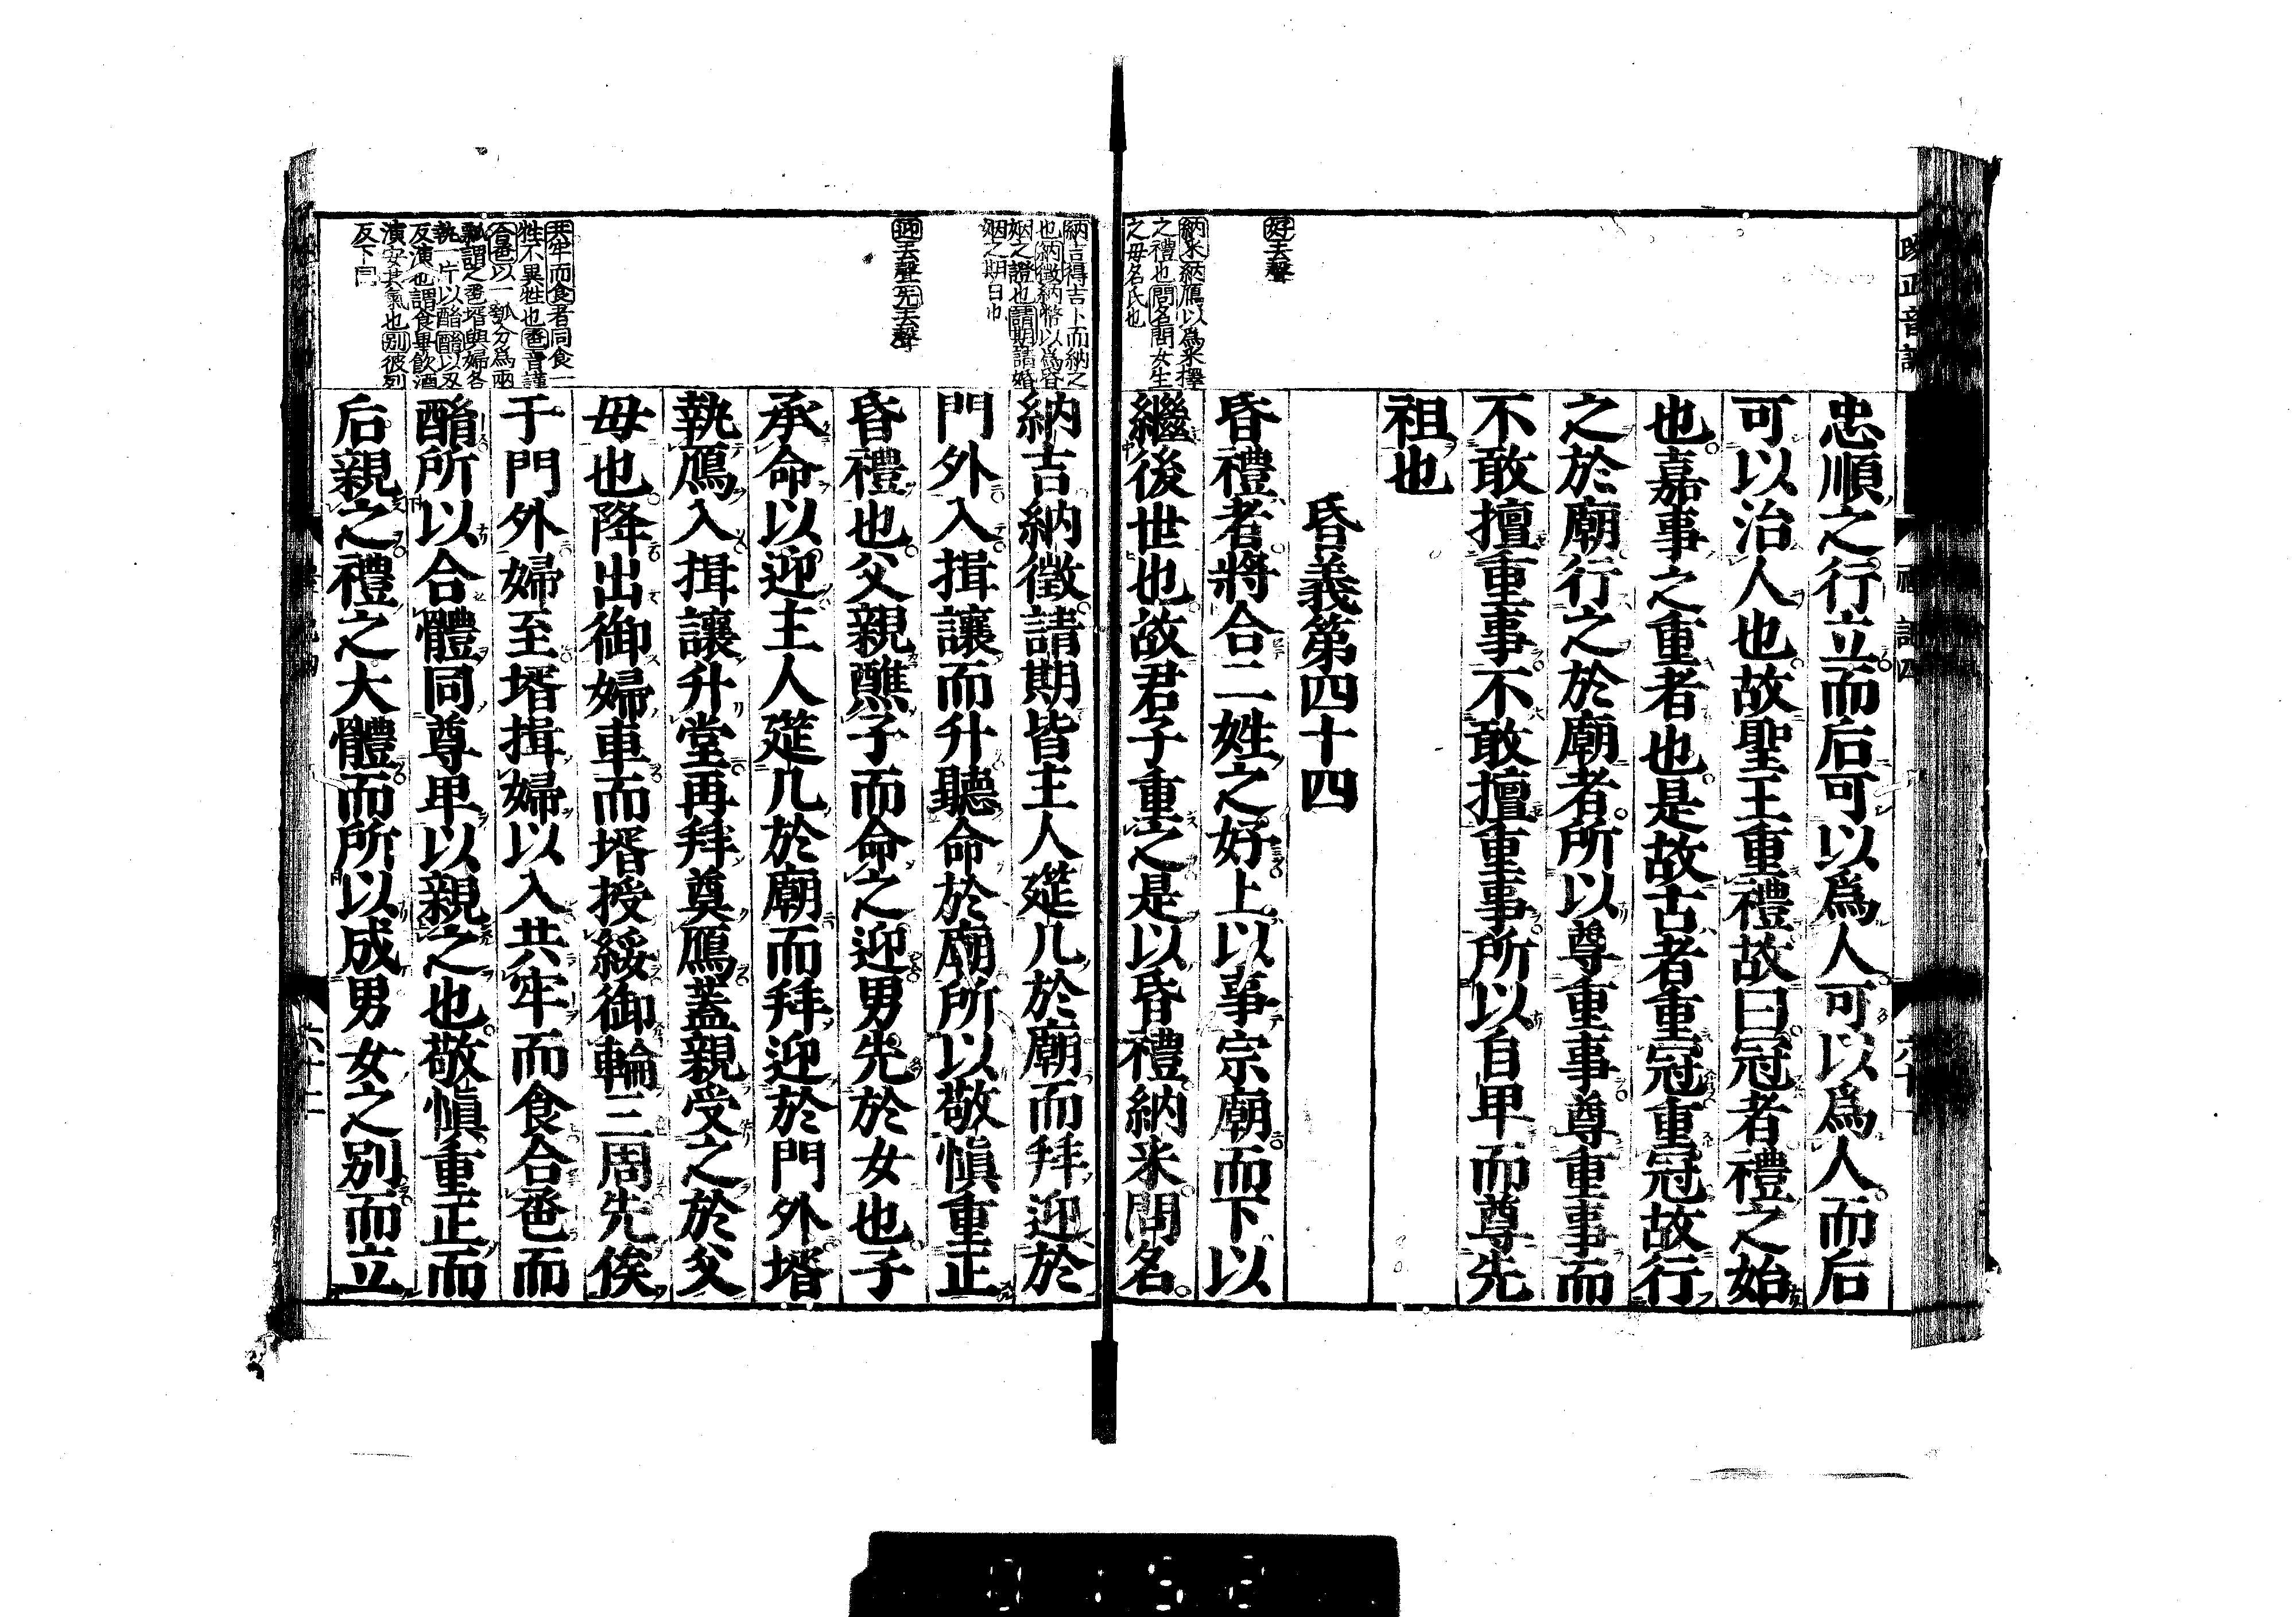 改正音訓
禮記四
六十
忠順之行立而后可以爲人可以爲人而后
可以治人也故聖王重禮故曰冠者禮之始
也嘉事之重者也是故古者重冠重冠故行
之於廟行之於廟者所以尊重事尊重事而
不敢擅重事不敢擅重事所以自卑而尊先
祖也
昏義第四十四
好去聲
昏禮者將合二姓之好上以事宗廟而下以
納采納鴈以爲采擇
之禮也問名問女生
之母名氏也
繼後世也故君子重之是以昏禮納采問名
納吉得吉卜而納之
也納徵納幣以爲昏
姻之證也請期請婚
姻之期日也
納吉納徵請期皆主人筵几於廟而拜迎於
門外入揖讓而升聽命於廟所以敬愼重正
迎去聲先去聲
昏禮也父親醮子而命之迎男先於女也子
承命以迎主人筵几於廟而拜迎於門外壻
執鴈入揖讓升堂再拜奠鴈蓋親受之於父
母也降出御婦車而壻授綏御輪三周先俟
于門外婦至壻揖婦以入共牢而食合卺而
共牢而食者同食一
牲不異牲也卺音謹
合卺以一瓠分爲兩
瓢謂之卺壻與婦各
執一片以酳酳以刄
反演也謂食畢飲酒
演安其氣也別彼列
反下同
酳所以合體同尊卑以親之也敬愼重正而
后親之禮之大體而所以成男女之別而立
六十二